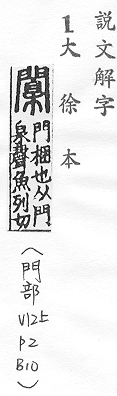 説文解字
1大徐本
闑
門梱也从門
臬聲魚列切
(門部
V12上
P2
B10)